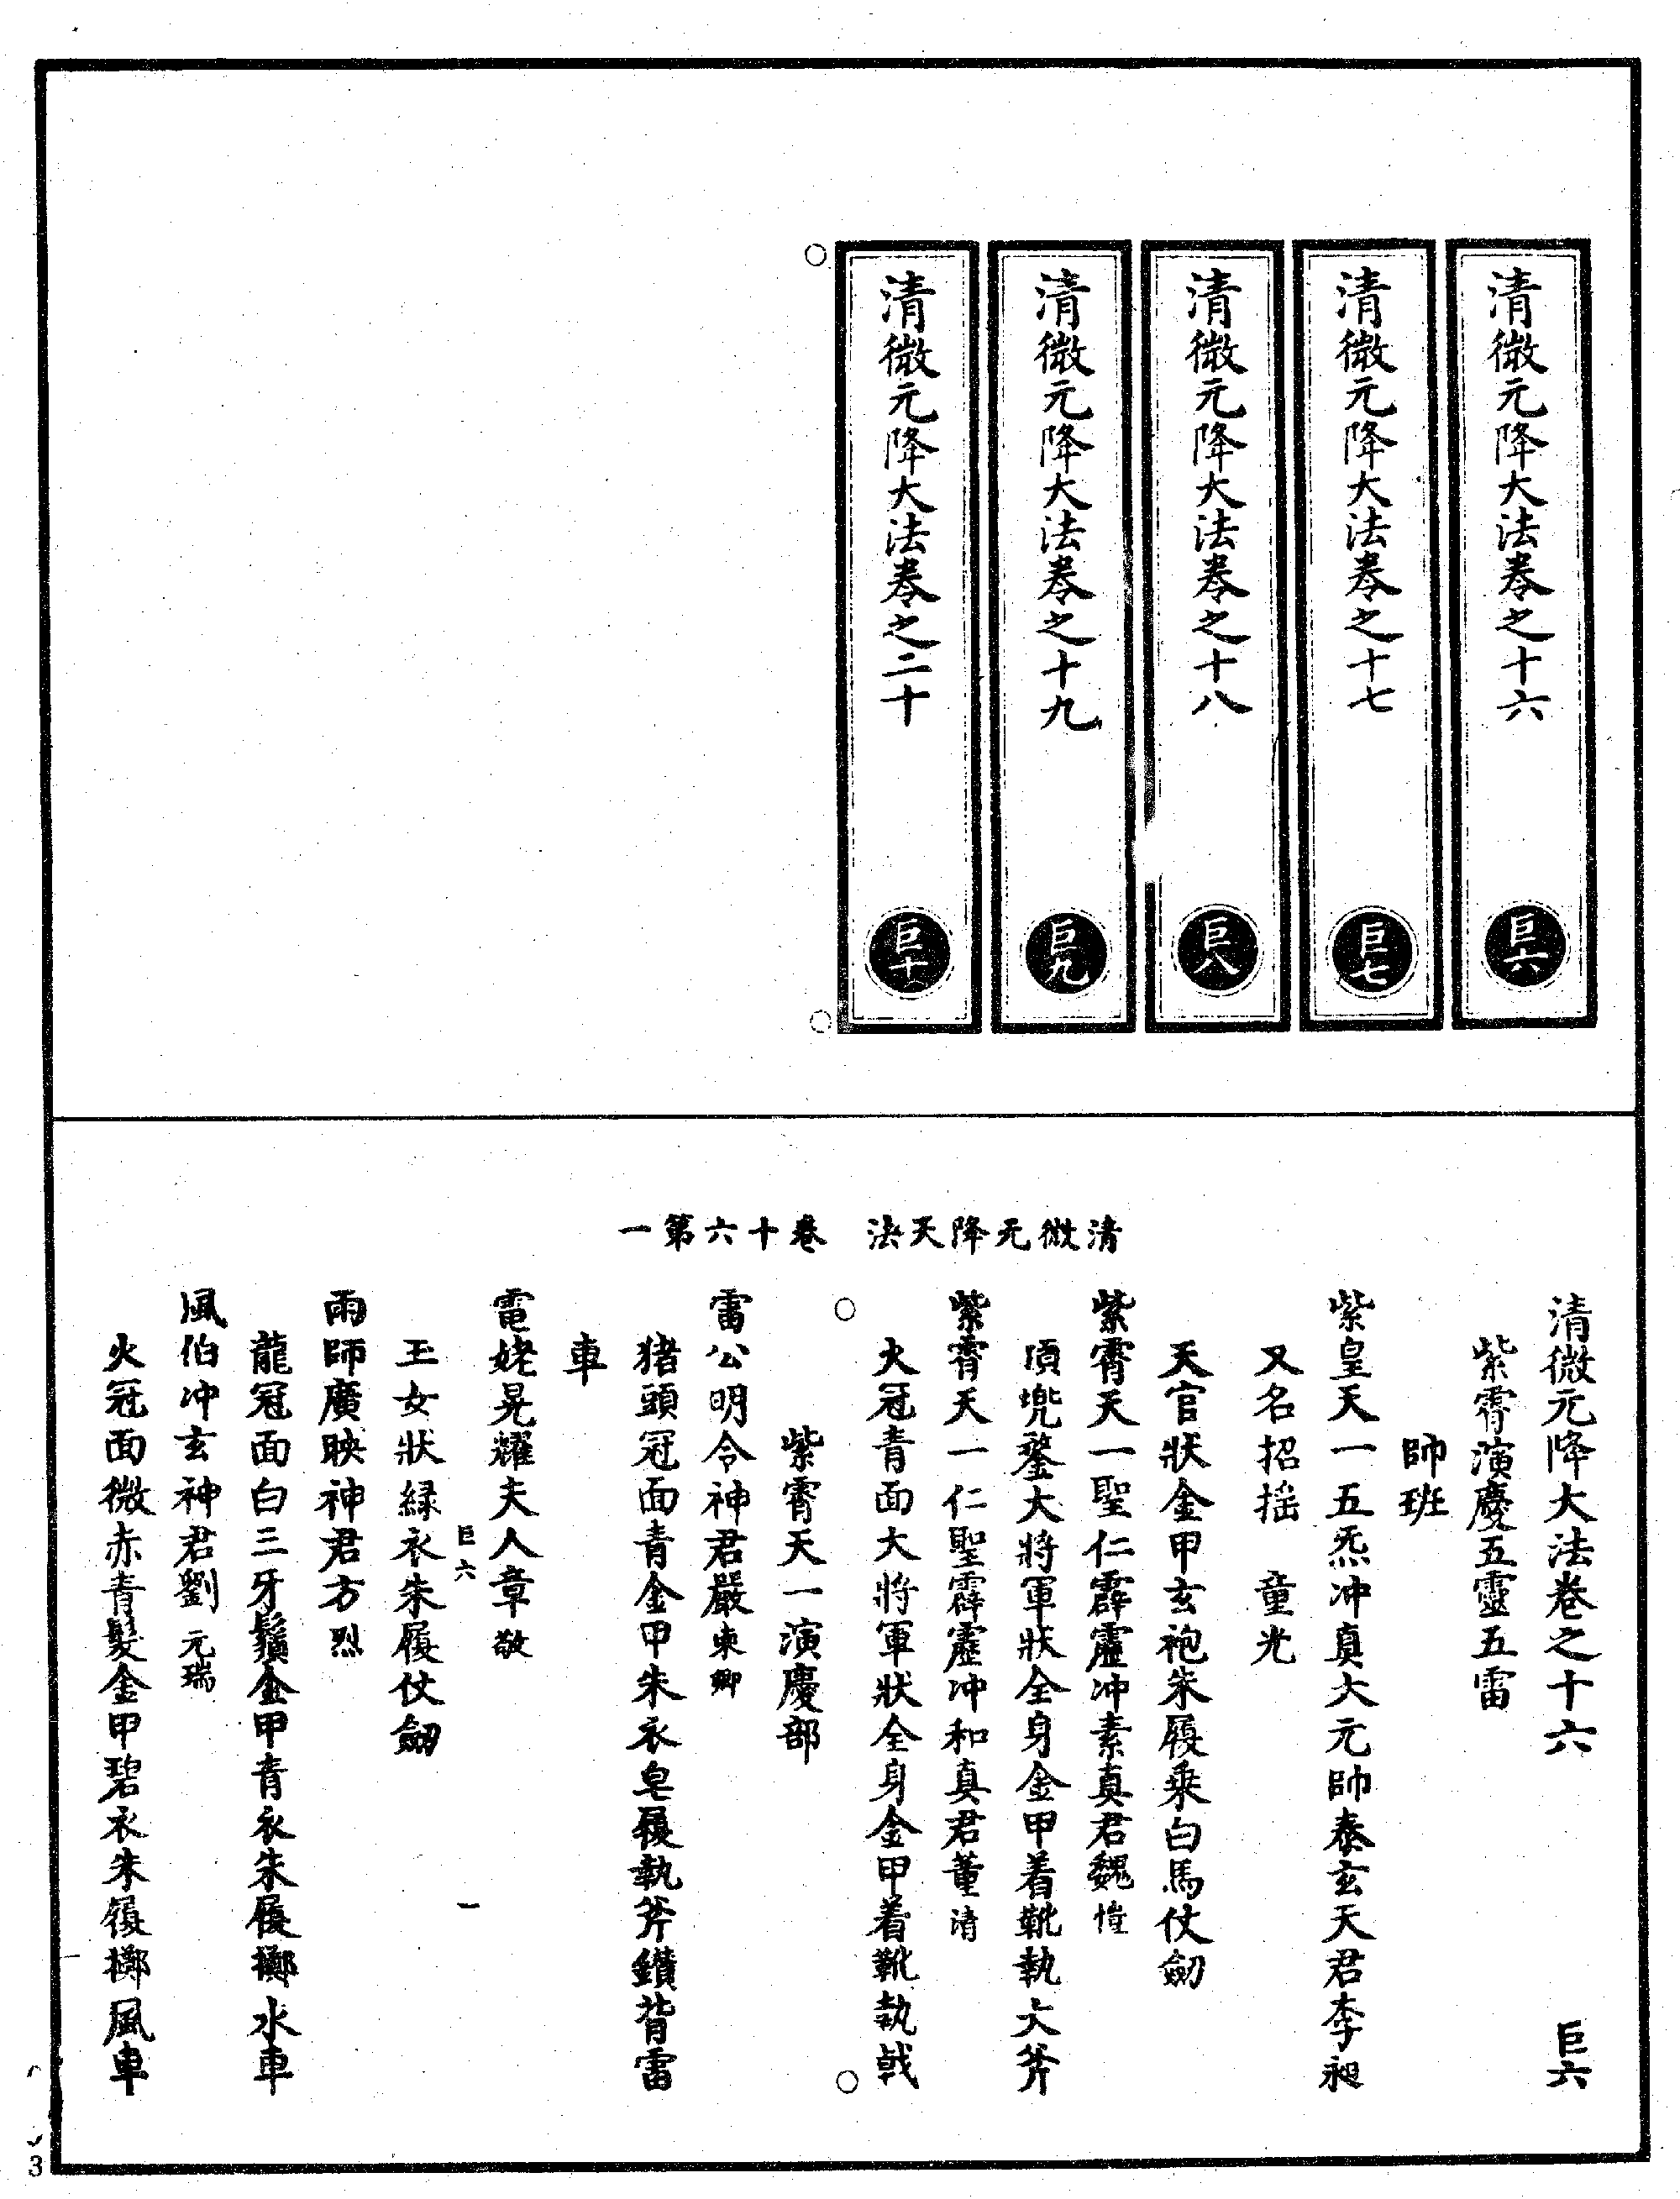 清微元降大法卷之十六
巨六
清微元降大法卷之十七
巨七
清微元降大法卷之十八
巨八
清微元降大法卷之十九
巨九
清微元降大法卷之二十
巨十
清微元降天法　卷十六第一
清微元降大法卷之十六　巨六
紫霄演慶五靈五雷
帥班
紫皇天一五炁冲真大元帥泰玄天君李昶
又名招摇　童光
天官狀金甲玄袍朱履乘白馬仗劒
紫霄天一聖仁霹靂冲素真君魏愷
頂兠鍪大將軍狀全身金甲着靴執大斧
紫霄天一仁聖霹靂冲和真君董清
火冠青面大將軍狀全身金甲着靴執戟
紫霄天一演慶部
雷公明令神君嚴東卿
猪頭冠面青金甲朱衣皂履執斧鑽背雷
車
電姥晃耀夫人章敬
巨六　一
玉女狀緑衣朱履仗劒
雨師廣映神君方烈
龍冠面白三牙鬚金甲青衣朱履擲水車
風伯冲玄神君劉元瑞
火冠面微赤青髮金甲碧衣朱履擲風車
3